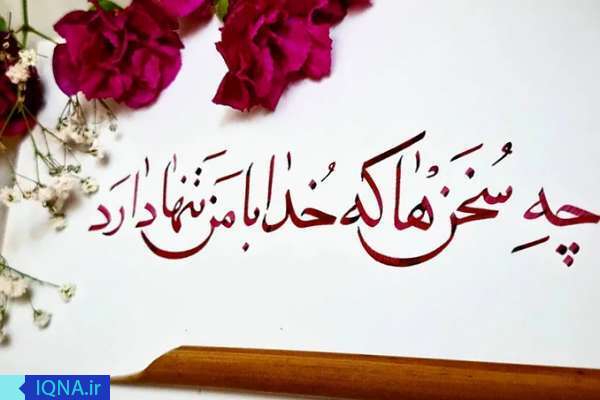 چهِ سُخَنْ هٰا که خُدٰا با مَنَ تَنهٰا دٰارَد
IQNA.ir